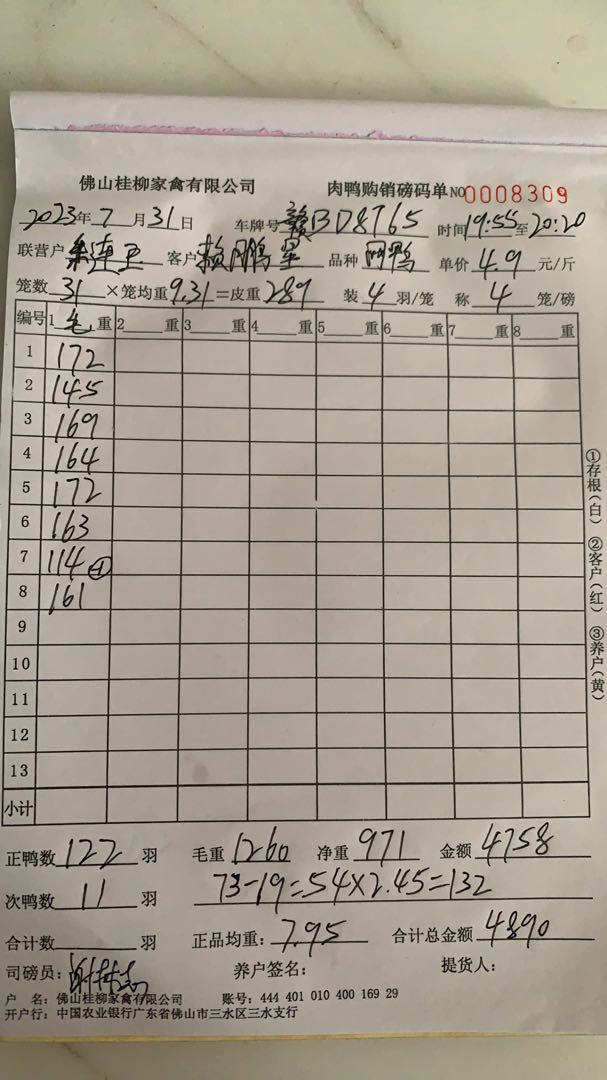 佛山桂柳家禽有限公司 肉鸭购销磅码单 NO 0008309
2023年7月31日 车牌号 赣BD8765 时间 19:55至20:20
联营户 客户 赖 品种 鸭 单价 4.9 元/斤
笼数 31 ×笼均重 9.31 =皮重 289 装 4 羽/笼 称 4 笼/磅
编号 1 毛 重 2 重 3 重 4 重 5 重 6 重 7 重 8 重
1 172
2 145
3 169
4 164
5 172
6 163
7 114 ④
8 161
9
10
11
12
13
小计
①存根(白) ②客户(红) ③养户(黄)
正鸭数 122 羽 毛重 1260 净重 971 金额 4758
次鸭数 11 羽 73-19=54×2.45=132
合计数 羽 正品均重: 7.95 合计总金额 4890
司磅员: 谢 养户签名: 提货人:
户 名: 佛山桂柳家禽有限公司 账号: 444 401 010 400 169 29
开户行: 中国农业银行广东省佛山市三水区三水支行